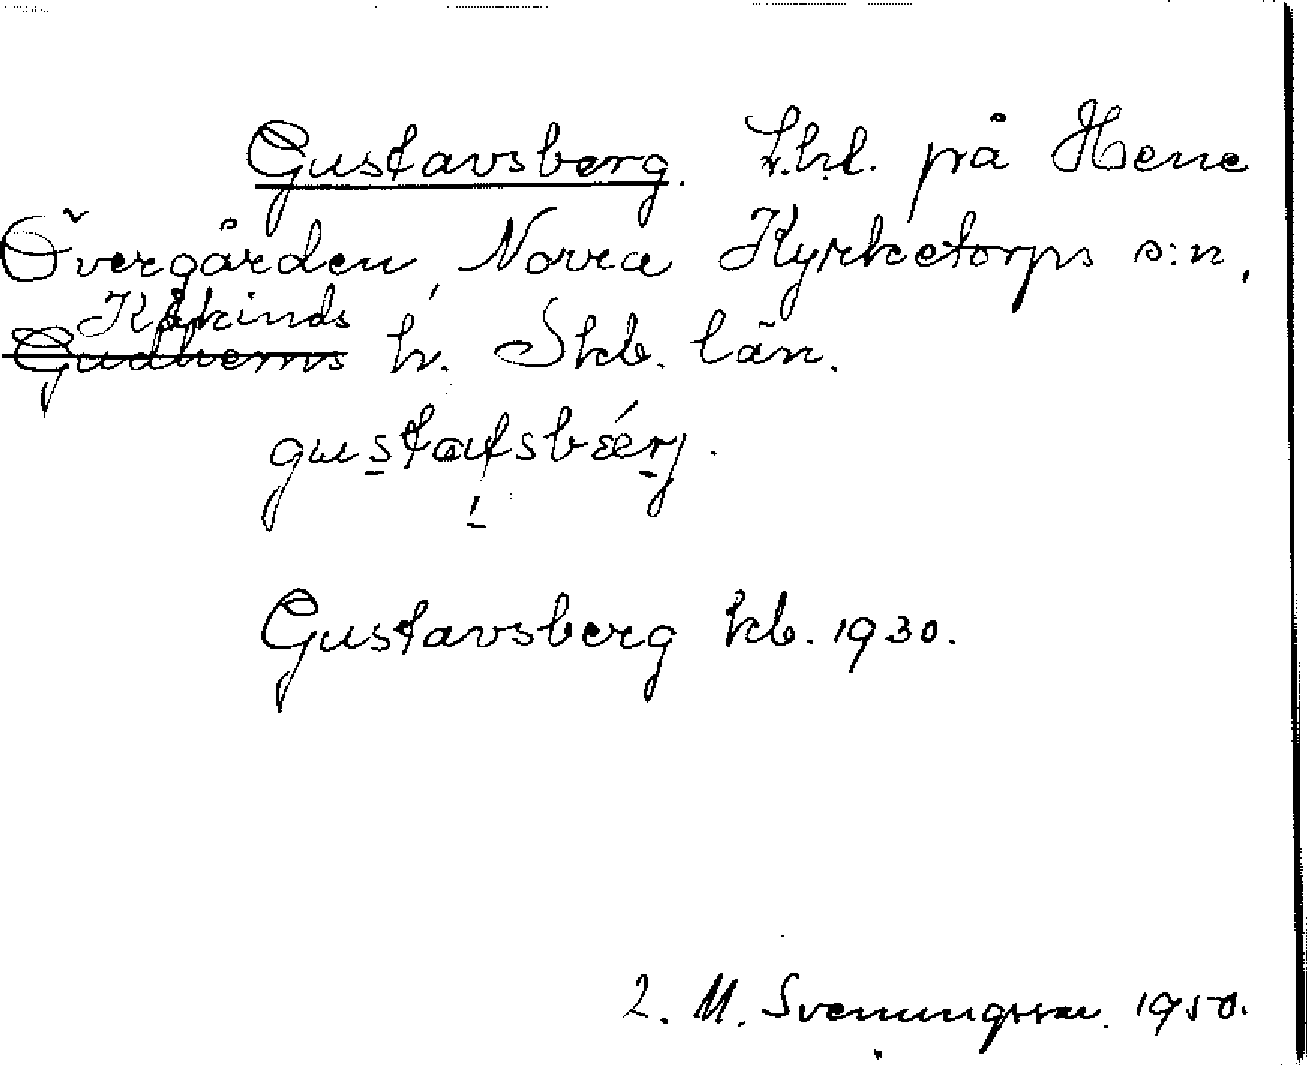 Gustavsberg. Lht. på Hene
Övergården, Norra Kyrketorps s:n,
Kåkinds
Gudhems hr. Skb. län.
gustafsbéerj.
Gustavsberg kb. 1930.
2. M. Svenungsson. 1950.